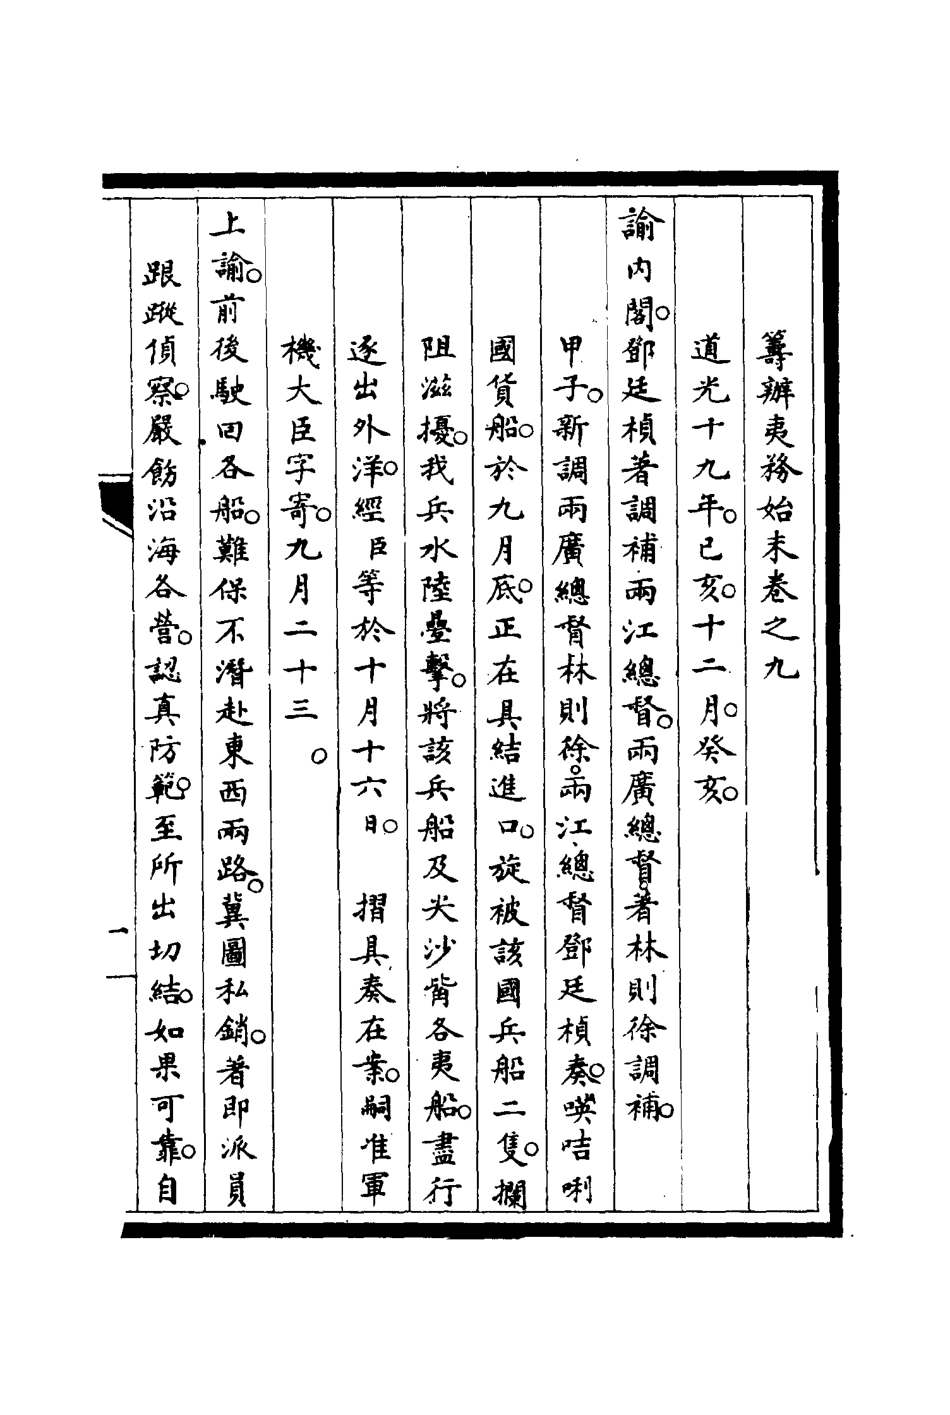 籌辦夷務始末卷之九
道光十九年。己亥。十二月。癸亥。
諭內閣。鄧廷楨著調補兩江總督。兩廣總督。著林則徐調補。
甲子。新調兩廣總督林則徐。兩江總督鄧廷楨奏。㗸咭唎
國貨船。於九月底。正在具結進口。旋被該國兵船二隻。攔
阻滋擾。我兵水陸疊擊。將該兵船及尖沙嘴各夷船。盡行
逐出外洋。經臣等於十月十六日。 摺具奏在案。嗣准軍
機大臣字寄。九月二十三。
上諭。前後駛回各船。難保不潛赴東西兩路。冀圖私銷。著即派員
跟蹤偵察。嚴飭沿海各營。認真防範。至所出切結。如果可靠。自
一